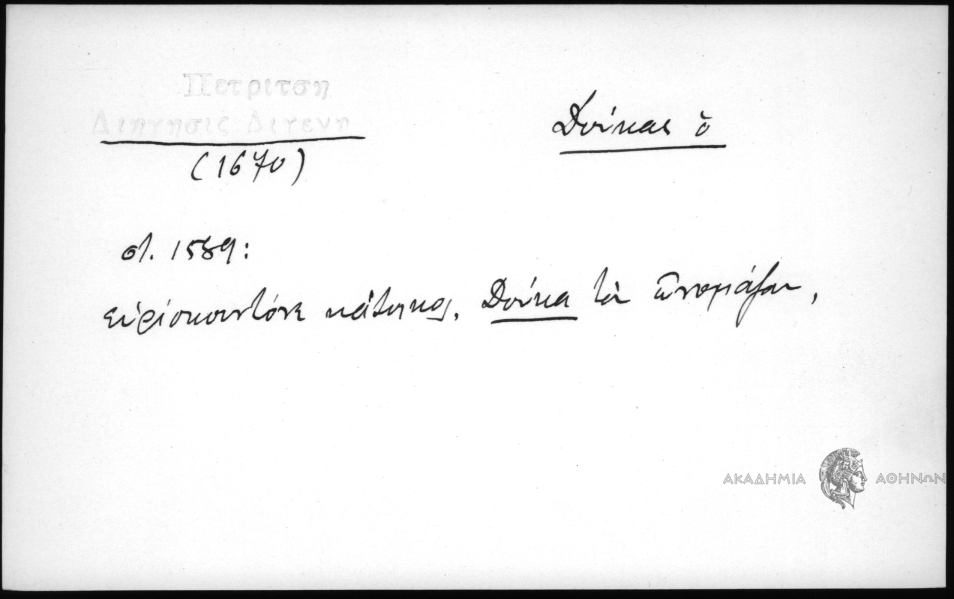 Πετρίτση
Διήγησις Διγενή
(1670)
Δούκας ὁ
στ. 1589:
εὑρίσκουντόνε κάτοικος, Δούκα τὸν ὠνομάζαν,
ΑΚΑΔΗΜΙΑ ΑΘΗΝΩΝ